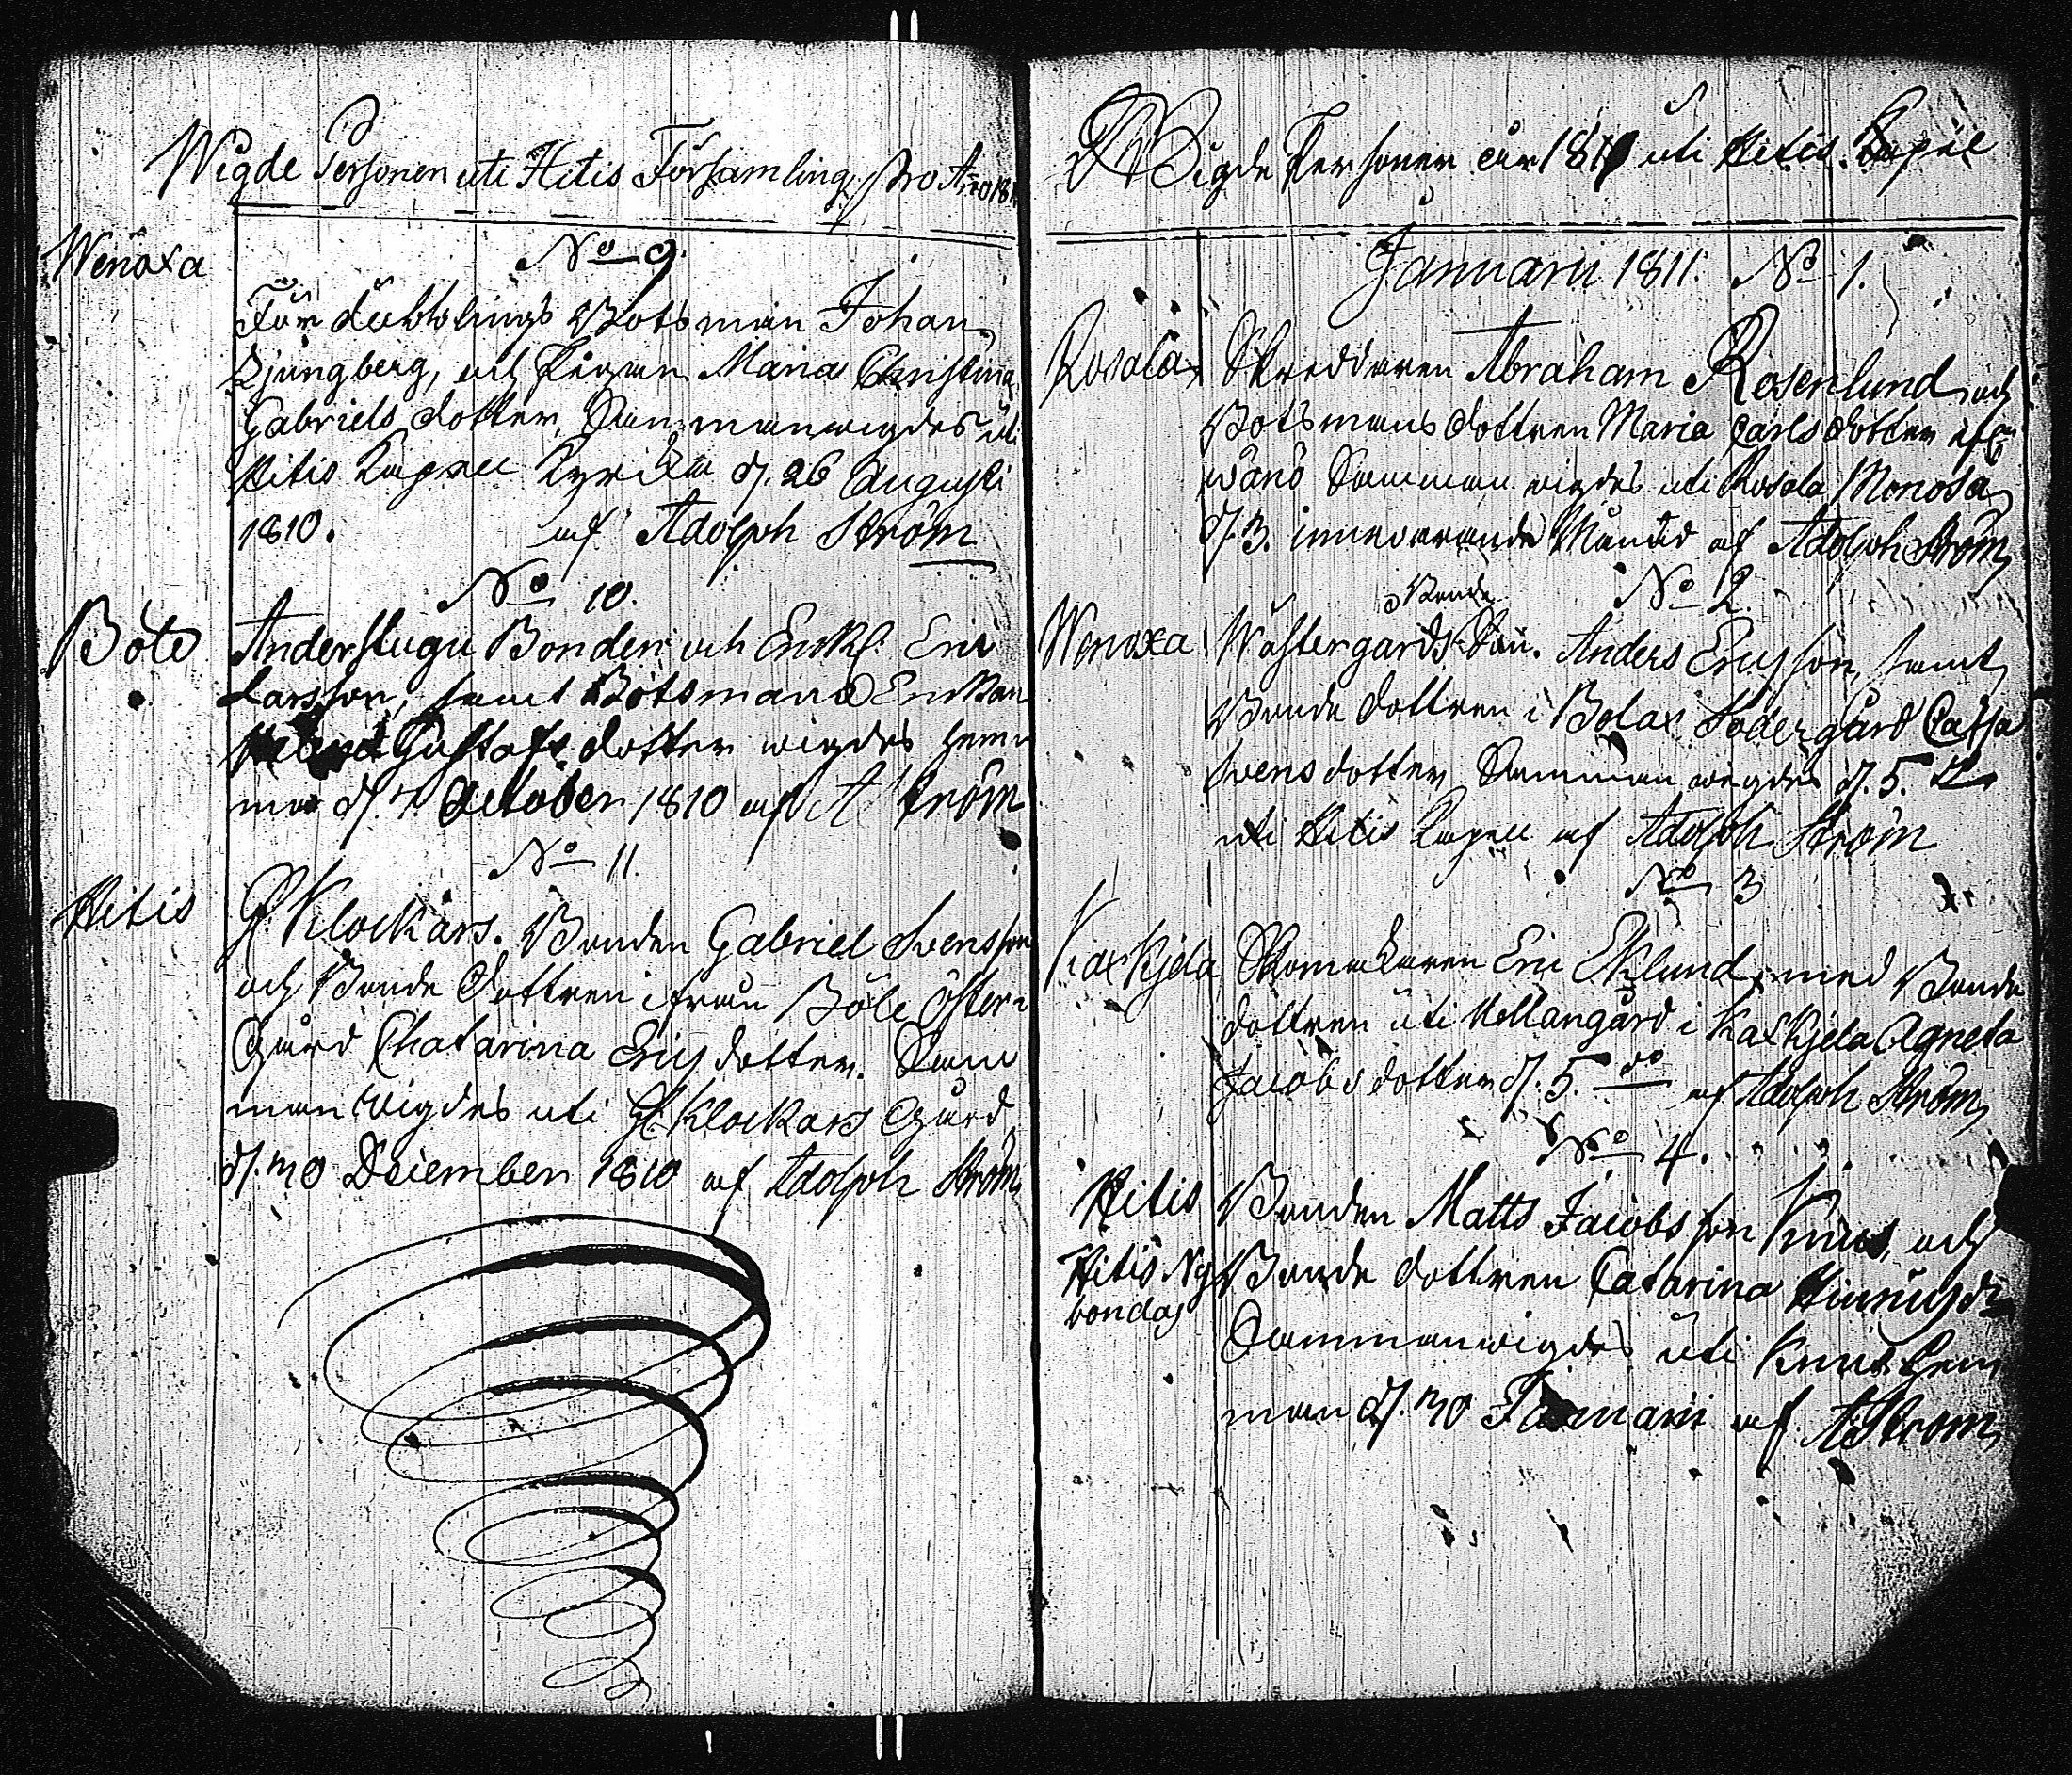 Wigde Personer uti Hitis Församling pro Anno 181
Wenoxa
No 9.
För dubblings Botsman Johan
Ljungberg, och Pigan Maria Christina
Gabriels dotter, Sammanwigdes uti
Hitis Kapell Kyrcka d. 26 Augusti
1810. af Adolph Ström
No 10.
Böle
Anderstugu Bonden och Enkl. Eric
Larsson, samt Botsmans Enkan
Gustafs dotter wigdes hemm
ma d. 7 October 1810 af A Ström
No 11.
Hitis
G. Klockars. Bonden Gabriel Svensson
och Bonde Dottren ifrån Böle Öster
Gård Chatarina Erics dotter. Sam
man wigdes uti G. Klockars Gård
d. 30 December 1810 af Adolph Ström
Wigde Personer år 1811 uti Hitis Capell
Januarii 1811. No 1.
Rosala
Skreddaren Abraham Rosenlund och
Botsmans dottren Maria Carls dotter
wänö Samman wigdes uti Rosala Monosa
d. 3. innevarande Månad af Adolph Ström
No 2.
Bonde
Wenoxa
Wästergårds Son. Anders Ericsson, samt
Bonde dottren i Bolax Södergård Cajsa
Svens dotter Samman wigdes d. 5.
uti Hitis Kapell af Adolph Ström
No 3
Kaxkjela
Skomakaren Eric Eklund, med Bonde
dottren uti Mellangård i Kaxkjela Agneta
Jacobs dotter d. 5. do af Adolph Ström
No 4.
Hitis
Bonden Matts Jacobsson Knuts, och
Hitis Ny
bondas
Bonde dottren Catarina Hinrics dr
Sammanwigdes uti Knuts hem
man d. 30 Januarii af A Ström